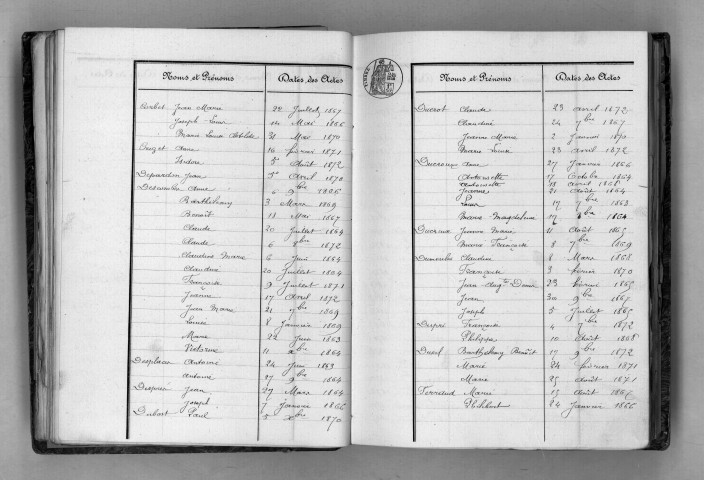 Noms et Prénoms Dates des Actes
Jean Marie 22 Juillet 1867
Joseph Louis 14 Mai 1866
Marie Louise Clotilde 31 Mai 1870
Anne 16 février 1871
Isidore 5 Août 1872
Dejardin Jean Avril 1870
Descombes Anne 6 9bre 1866
Barthélemy 3 Mars 1869
Benoit 18 Mai 1867
Claude 20 Juillet 1864
Claude 6 8bre 1872
Claudine Marie 6 Juin 1864
Claudine 20 Juillet 1864
Françoise 9 Juillet 1871
Jeanne 17 Avril 1872
Jean Marie 21 7bre 1869
Louise 8 Janvier 1869
Marie 22 Juin 1863
Victorine 11 Xbre 1864
Desplaces Antoine 24 Juin 1863
Antoine 27 9bre 1864
Jean 27 Mars 1864
Joseph 7 Janvier 1866
Dubost Paul 5 Xbre 1870
Noms et Prénoms Dates des Actes
Ducrot Claude 23 avril 1872
Claudine 24 7bre 1867
Jeanne Marie 2 Janvier 1870
Marie Louise 23 avril 1872
Anne 27 Janvier 1866
Antoinette 17 Octobre 1864
Antoinette 18 avril 1868
Jeanne 21 Août 1864
Louis 17 7bre 1863
Marie Magdeleine 1864
Ducroux Jeanne Marie 11 Août 1865
Marie Françoise 8 7bre 1869
Dumoulin Claudine 8 Mars 1868
Françoise 3 février 1870
Jean 23 février 1865
Jean 30 9bre 1867
Joseph 5 Juillet 1865
Despré Françoise 4 7bre 1872
Philippe 10 Août 1868
Barthélemy Benoît 17 9bre 1872
Marie 24 février 1871
Marie 25 Août 1871
Marie 15 Août 1865
Philibert 24 Janvier 1866